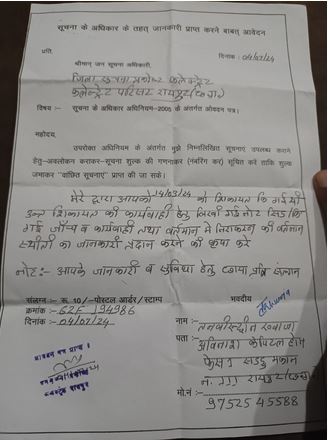 सूचना के अधिकार के तहत् जानकारी प्राप्त करने बाबत् आवेदन
प्रति,
दिनांक : 04/07/24
श्रीमान् जन सूचना अधिकारी,
जिला कलेक्ट्रेट
कलेक्ट्रेट परिसर रायपुर
विषय :- सूचना के अधिकार अधिनियम-2005 के अंतर्गत आवेदन पत्र।
महोदय,
उपरोक्त अधिनियम के अंतर्गत मुझे निम्नलिखित सूचनाएं उपलब्ध कराने
हेतु-अवलोकन कराकर-सूचना शुल्क की गणनाकर (नंबरिंग कर) सूचित करें ताकि शुल्क
जमाकर "वांछित सूचनाएं" प्राप्त की जा सके।
मेरे द्वारा आपको 14/03/24 को शिकायत कि गई थी
उक्त शिकायत की कार्यवाही हेतु लिखी गई नोट शिट
गई जाँच व कार्यवाही तथा वर्तमान में निराकरण की वर्तमान
स्थिती का जानकारी प्रदान करने की कृपा करे
नोट:- आपके जानकारी व सुविधा हेतु छाया प्रति संलग्न
संलग्न:- रू. 10/- पोस्टल आर्डर/स्टाम्प
भवदीय
क्रमांक :- 62F 194986
दिनांक :- 04/07/24
नाम :-
पता :- अविनाश केपिटल होम
फेस 1 सड्डु मकान
नं. 111 रायपुर
मो.नं : 97525 45588
आवेदन पत्र प्राप्त।
रायपुर